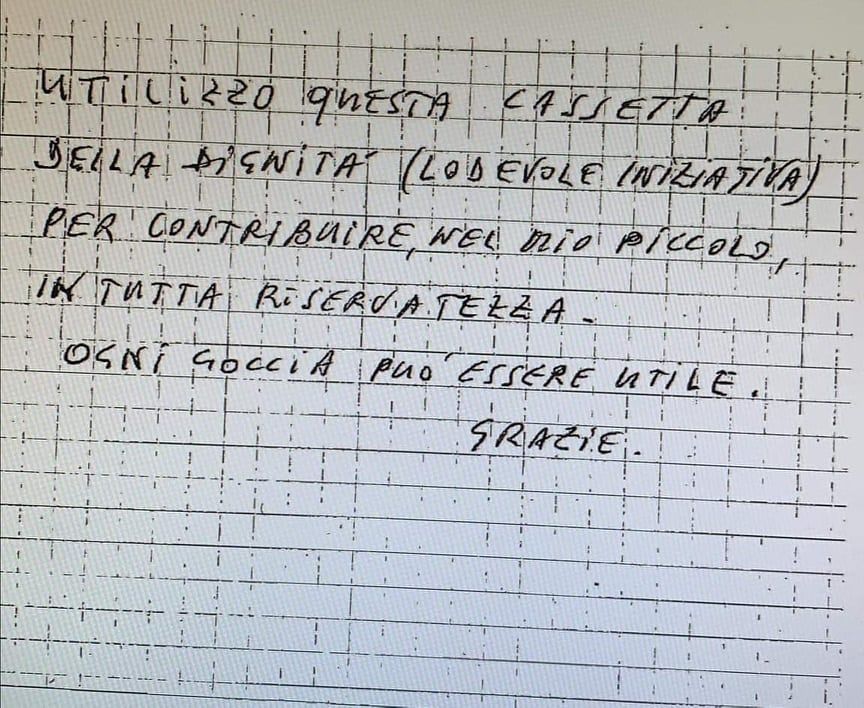 UTILIZZO QUESTA CASSETTA
DELLA DIGNITA' (LODEVOLE INIZIATIVA)
PER CONTRIBUIRE, NEL MIO PICCOLO,
IN TUTTA RISERVATEZZA -
OGNI GOCCIA PUO' ESSERE UTILE.
GRAZIE.